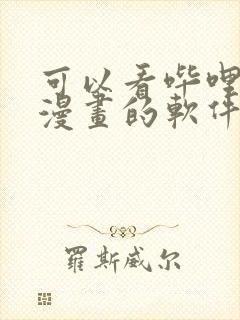 可以看哔哩
漫畫的軟件
羅斯威尔